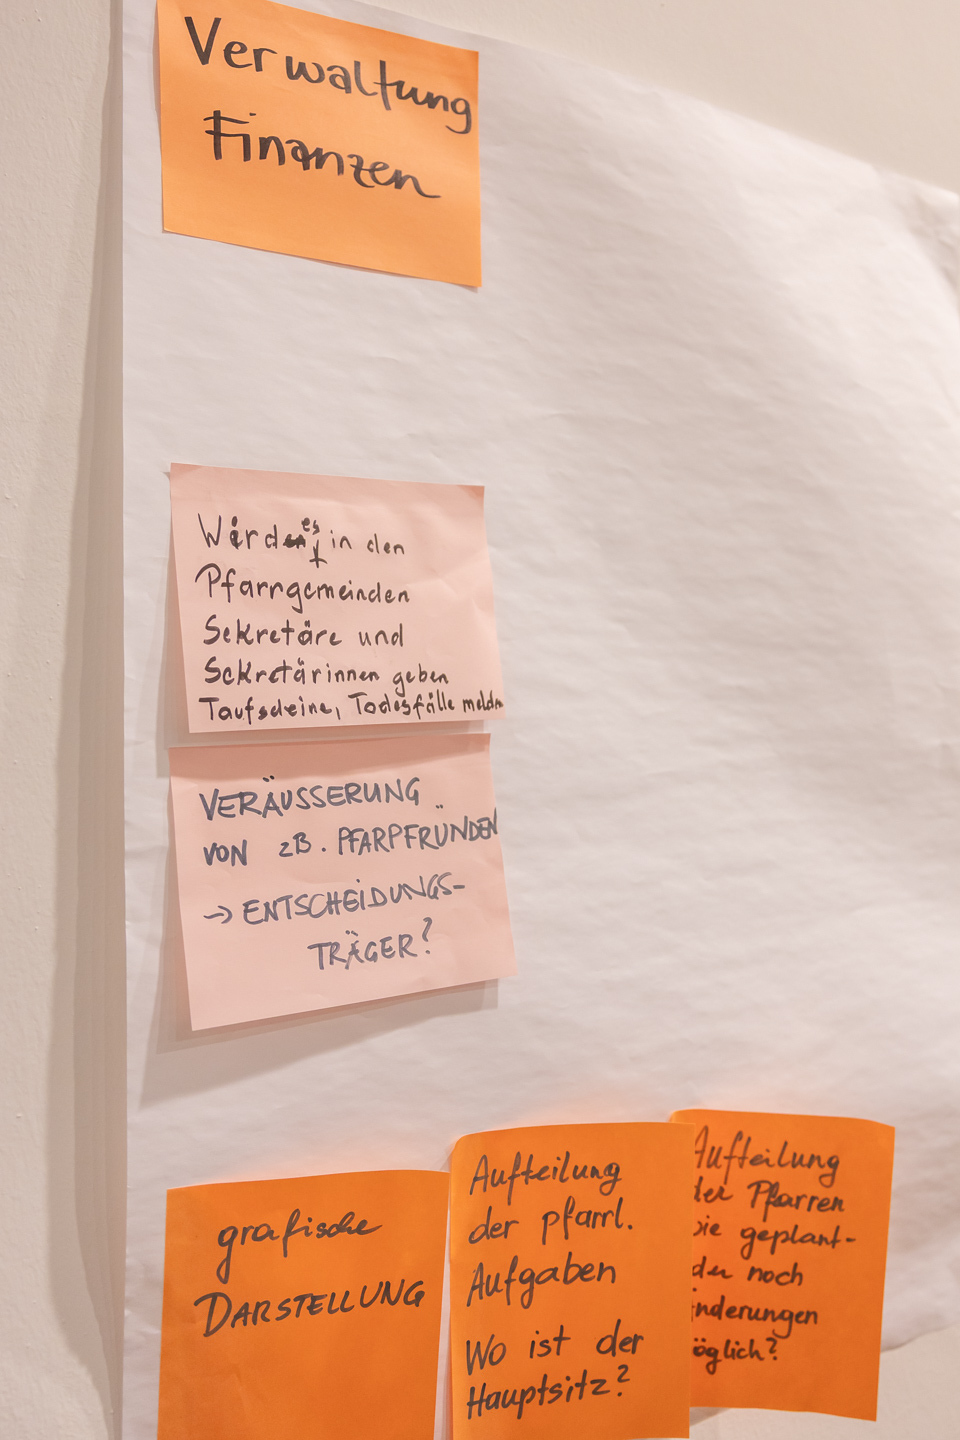 Verwaltung
Finanzen
Wird es in den
Pfarrgemeinden
Sekretäre und
Sekretärinnen geben
Taufscheine, Todesfälle melden
VERÄUSSERUNG
VON zB. PFARPFRÜNDEN
→ ENTSCHEIDUNGS-
TRÄGER?
grafische
DARSTELLUNG
Aufteilung
der pfarrl.
Aufgaben
Wo ist der
Hauptsitz?
Aufteilung
der Pfarren
wie geplant-
der noch
nderungen
öglich?